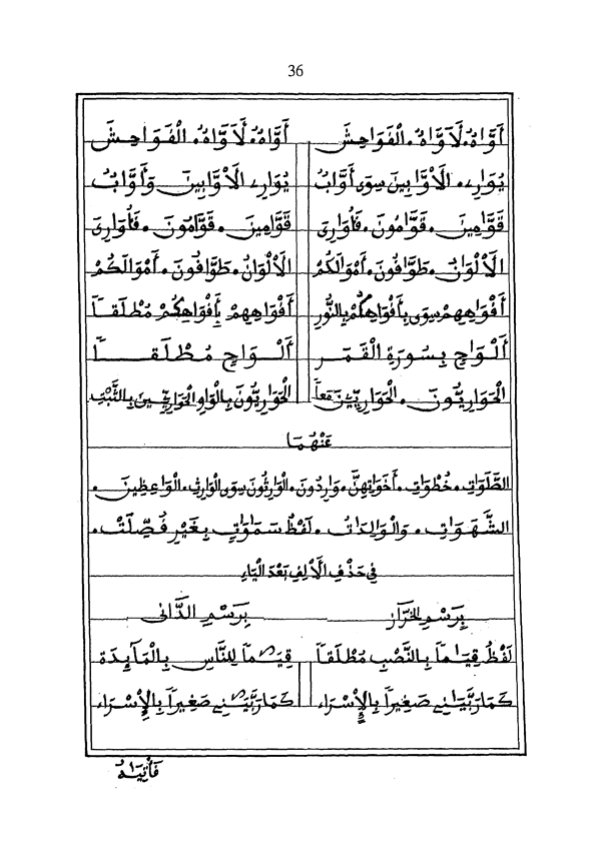 36
أَوَّاهٌ. لَأَوَّاهٌ. الْفَوَاحِشَ أَوَّاهٌ. لَأَوَّاهٌ. الْفَوَاحِشَ
يُوَارِے. الْأَوَّابِينَ سِوَى أَوَّابٌ يُوَارِے. الْأَوَّابِينَ وَأَوَّابٌ
قَوَّامِينَ. قَوَّامُونَ. فَأُوَارِىَ قَوَّامِينَ. قَوَّامُونَ. فَأُوَارِىَ
الْأَلْوَانُ. طَوَّافُونَ. أَمْوَالُكُمْ الْأَلْوَانُ. طَوَّافُونَ. أَمْوَالُكُمْ
أَفْوَاهِهِمْ سِوَى بِأَفْوَاهِكُمْ بِالنُّورِ أَفْوَاهِهِمْ بِأَفْوَاهِكُمْ مُطْلَقاً
أَلْوَاحٍ بِسُورَةِ الْقَمَرِ أَلْوَاحٍ مُطْلَقاً
الْحَوَارِيُّونَ. الْحَوَارِيِّينَ مَعاً الْحَوَارِيُّونَ بِالْوَاوِ الْحَوَارِيِّينَ بِالثَّبْتِ
عَنْهُمَا
الصَّلَوَاتِ. خُطُوَاتِ. أَخَوَاتِهِنَّ. وَارِدُونَ. الْوَارِثُونَ سِوَى الْوَارِثِ. الْوَاعِظِينَ.
الشَّهَوَاتِ. وَالْوَالِدَاتُ. لَفْظُ سَمَاوَاتٍ بِغَيْرِ فُصِّلَتْ.
فِى حَذْفِ الْأَلِفِ بَعْدَ الْيَاءِ
بِرَسْمِ الْخَرَّازِ بِرَسْمِ الدَّانِى
لَفْظُ قِيَاماً بِالنَّصْبِ مُطْلَقاً قِيَاماً لِلنَّاسِ بِالْمَآئِدَةِ
كَمَا رَبَّيَانِے صَغِيراً بِالْإِسْرَاءِ كَمَا رَبَّيَانِے صَغِيراً بِالْإِسْرَاءِ
فَأْتِيَاهُ